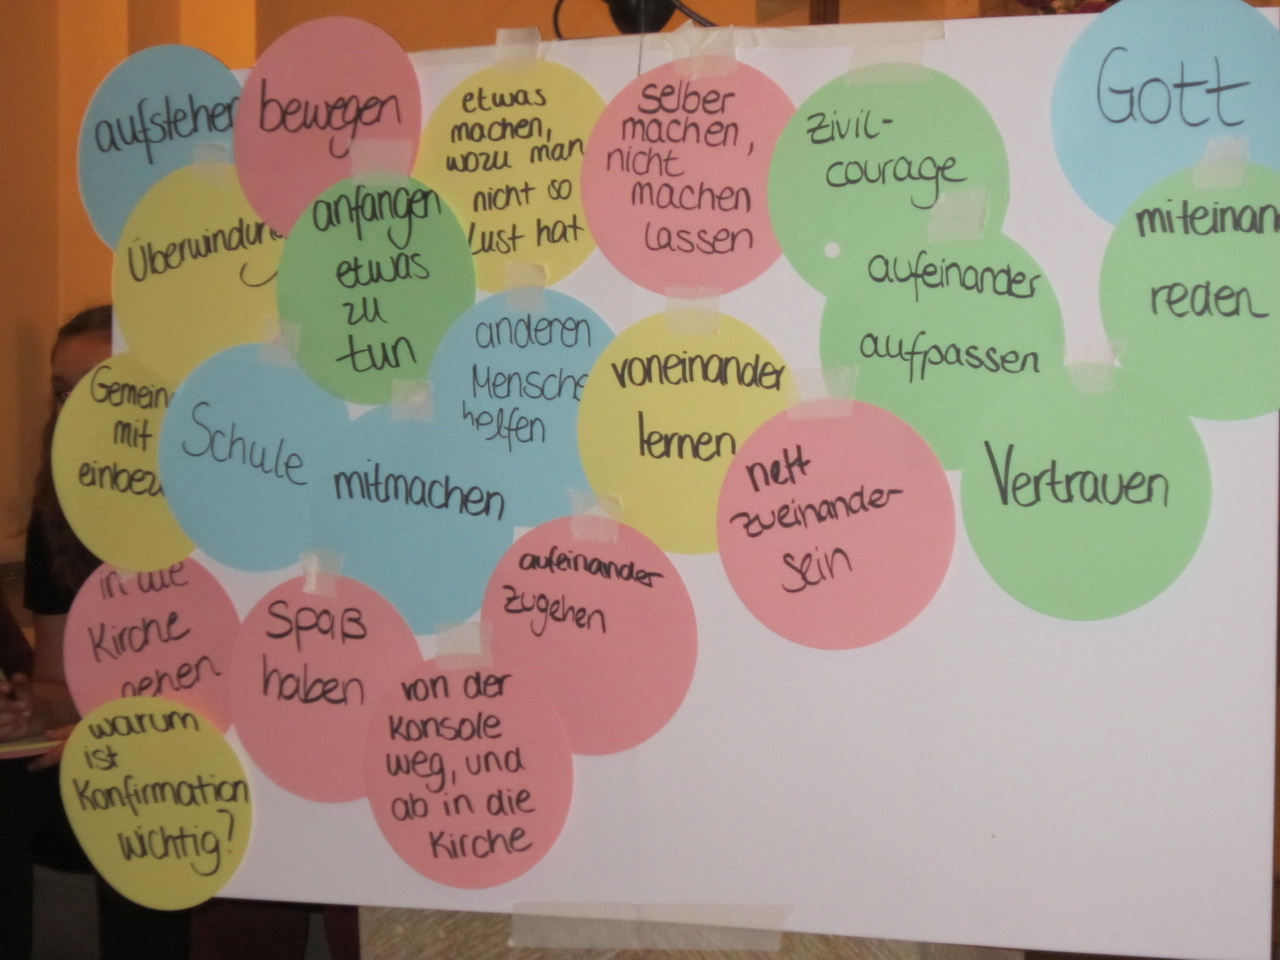 aufstehen
bewegen
etwas
machen,
wozu man
nicht so
Lust hat
selber
machen,
nicht
machen
lassen
zivil-
courage
Gott
Überwindung
anfangen
etwas
zu
tun
anderen
helfen
voneinander
lernen
aufeinander
aufpassen
reden
mit
Schule
mitmachen
nett
zueinander
sein
Vertrauen
in die
Kirche
gehen
Spaß
haben
aufeinander
zugehen
von der
Konsole
weg, und
ab in die
Kirche
warum
ist
Konfirmation
wichtig?